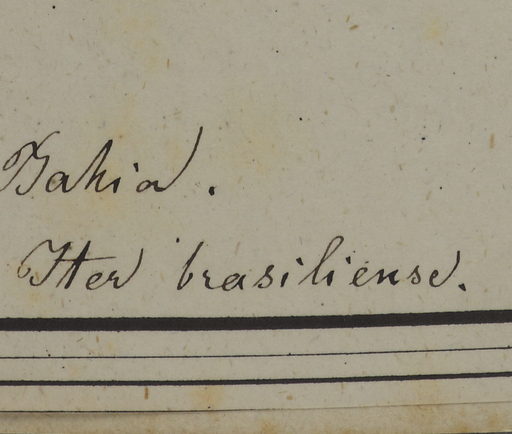 Bahia.
Iter brasiliense.